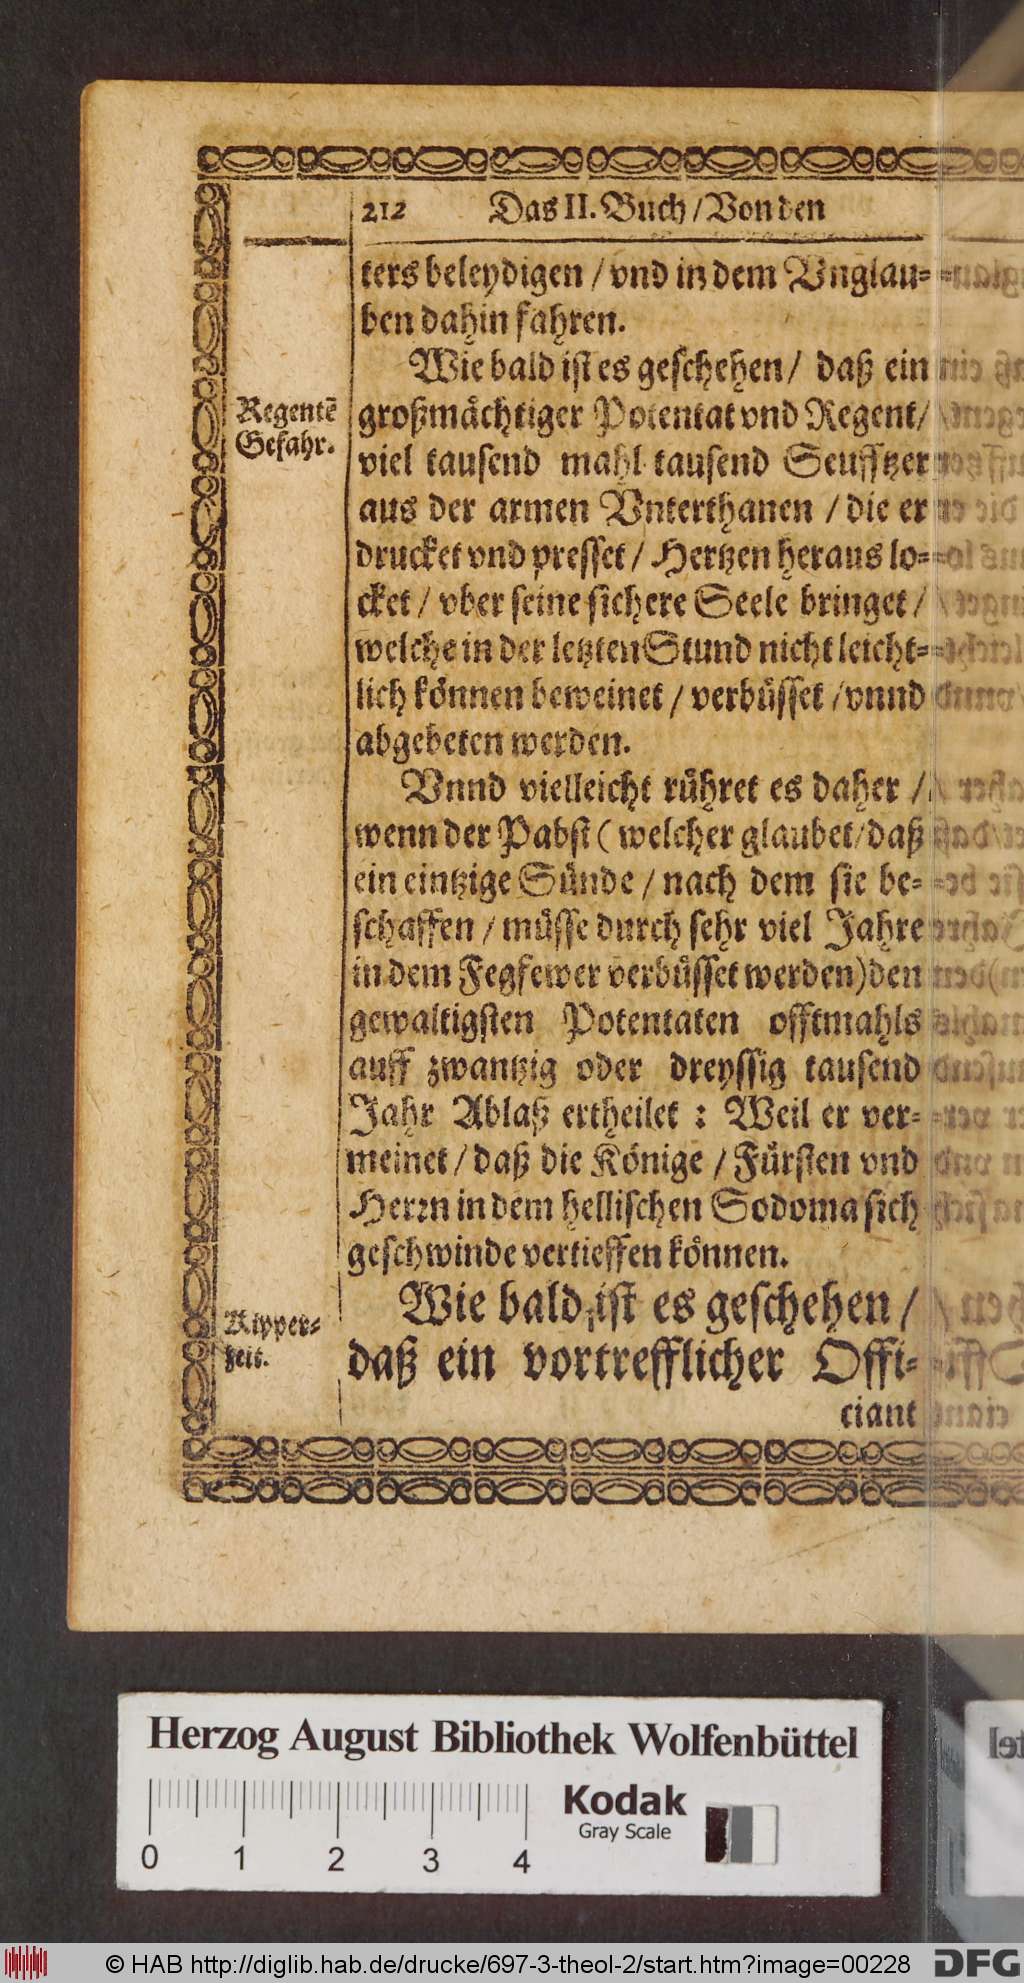 212 Das II. Buch / Von den
ters beleydigen / vnd in dem Vnglau-
ben dahin fahren.
Wie bald ist es geschehen / daß ein
Regentē
Gefahr.
großmächtiger Potentat vnd Regent /
viel tausend mahl tausend Seufftzer
aus der armen Vnterthanen / die er
drucket vnd presset / Hertzen heraus lo-
cket / vber seine sichere Seele bringet /
welche in der letzten Stund nicht leicht-
lich können beweinet / verbüsset / vnnd
abgebeten werden.
Vnnd vielleicht rühret es daher /
wenn der Pabst ( welcher glaubet / daß
ein eintzige Sünde / nach dem sie be-
schaffen / müsse durch sehr viel Jahre
in dem Fegfewer verbüsset werden) den
gewaltigsten Potentaten offtmahls
auff zwantzig oder dreyssig tausend
Jahr Ablaß ertheilet : Weil er ver-
meinet / daß die Könige / Fürsten vnd
Herrn in dem hellischen Sodoma sich
geschwinde vertieffen können.
Wie bald ist es geschehen /
Kipper-
zeit.
daß ein vortrefflicher Offi-
ciant
Herzog August Bibliothek Wolfenbüttel
0 1 2 3 4
Kodak
Gray Scale
© HAB http://diglib.hab.de/drucke/697-3-theol-2/start.htm?image=00228
DFG